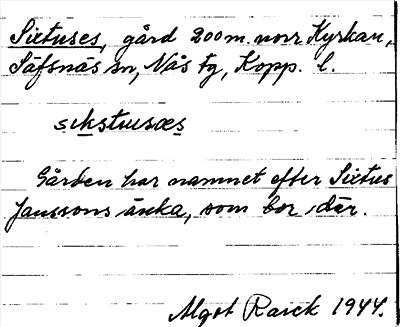 Sixtuses, gård 200 m. norr Kyrkan,
Säfsnäs sn, Nås tg, Kopp. l.
sikstusæs
Gården har namnet efter Sixtus
Janssons änka, som bor där.
Algot Raick 1944.